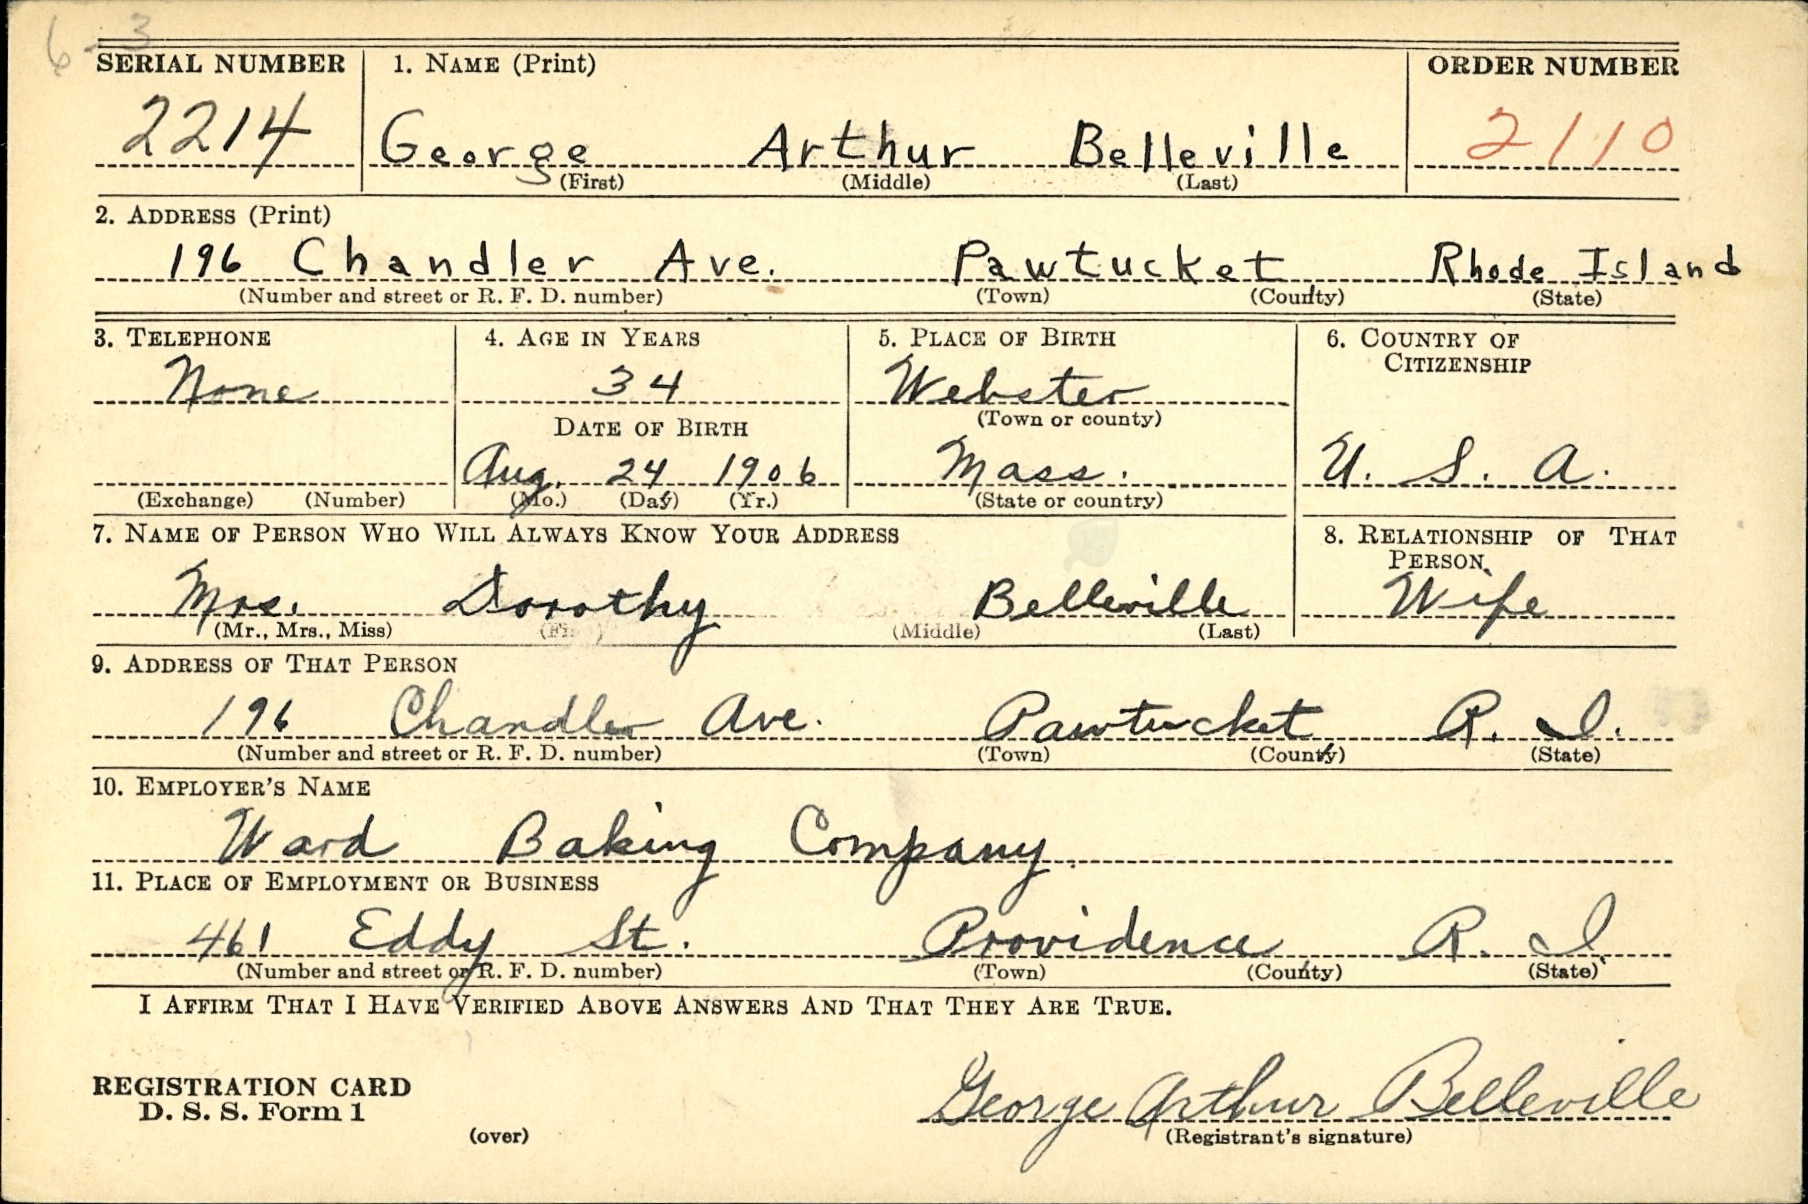 6-3
SERIAL NUMBER 1. NAME (Print) ORDER NUMBER
2214 George Arthur Belleville 2110
(First) (Middle) (Last)
2. ADDRESS (Print)
196 Chandler Ave. Pawtucket Rhode Island
(Number and street or R. F. D. number) (Town) (County) (State)
3. TELEPHONE 4. AGE IN YEARS 5. PLACE OF BIRTH 6. COUNTRY OF
CITIZENSHIP
None 34 Webster
(Town or county)
DATE OF BIRTH
Aug. 24 1906 Mass. U. S. A.
(Exchange) (Number) (Mo.) (Day) (Yr.) (State or country)
7. NAME OF PERSON WHO WILL ALWAYS KNOW YOUR ADDRESS 8. RELATIONSHIP OF THAT
PERSON
Mrs. Dorothy Belleville Wife
(Mr., Mrs., Miss) (First) (Middle) (Last)
9. ADDRESS OF THAT PERSON
196 Chandler Ave. Pawtucket R. I.
(Number and street or R. F. D. number) (Town) (County) (State)
10. EMPLOYER'S NAME
Ward Baking Company.
11. PLACE OF EMPLOYMENT OR BUSINESS
461 Eddy St. Providence R. I.
(Number and street or R. F. D. number) (Town) (County) (State)
I AFFIRM THAT I HAVE VERIFIED ABOVE ANSWERS AND THAT THEY ARE TRUE.
REGISTRATION CARD
D. S. S. Form 1
George Arthur Belleville
(over) (Registrant's signature)